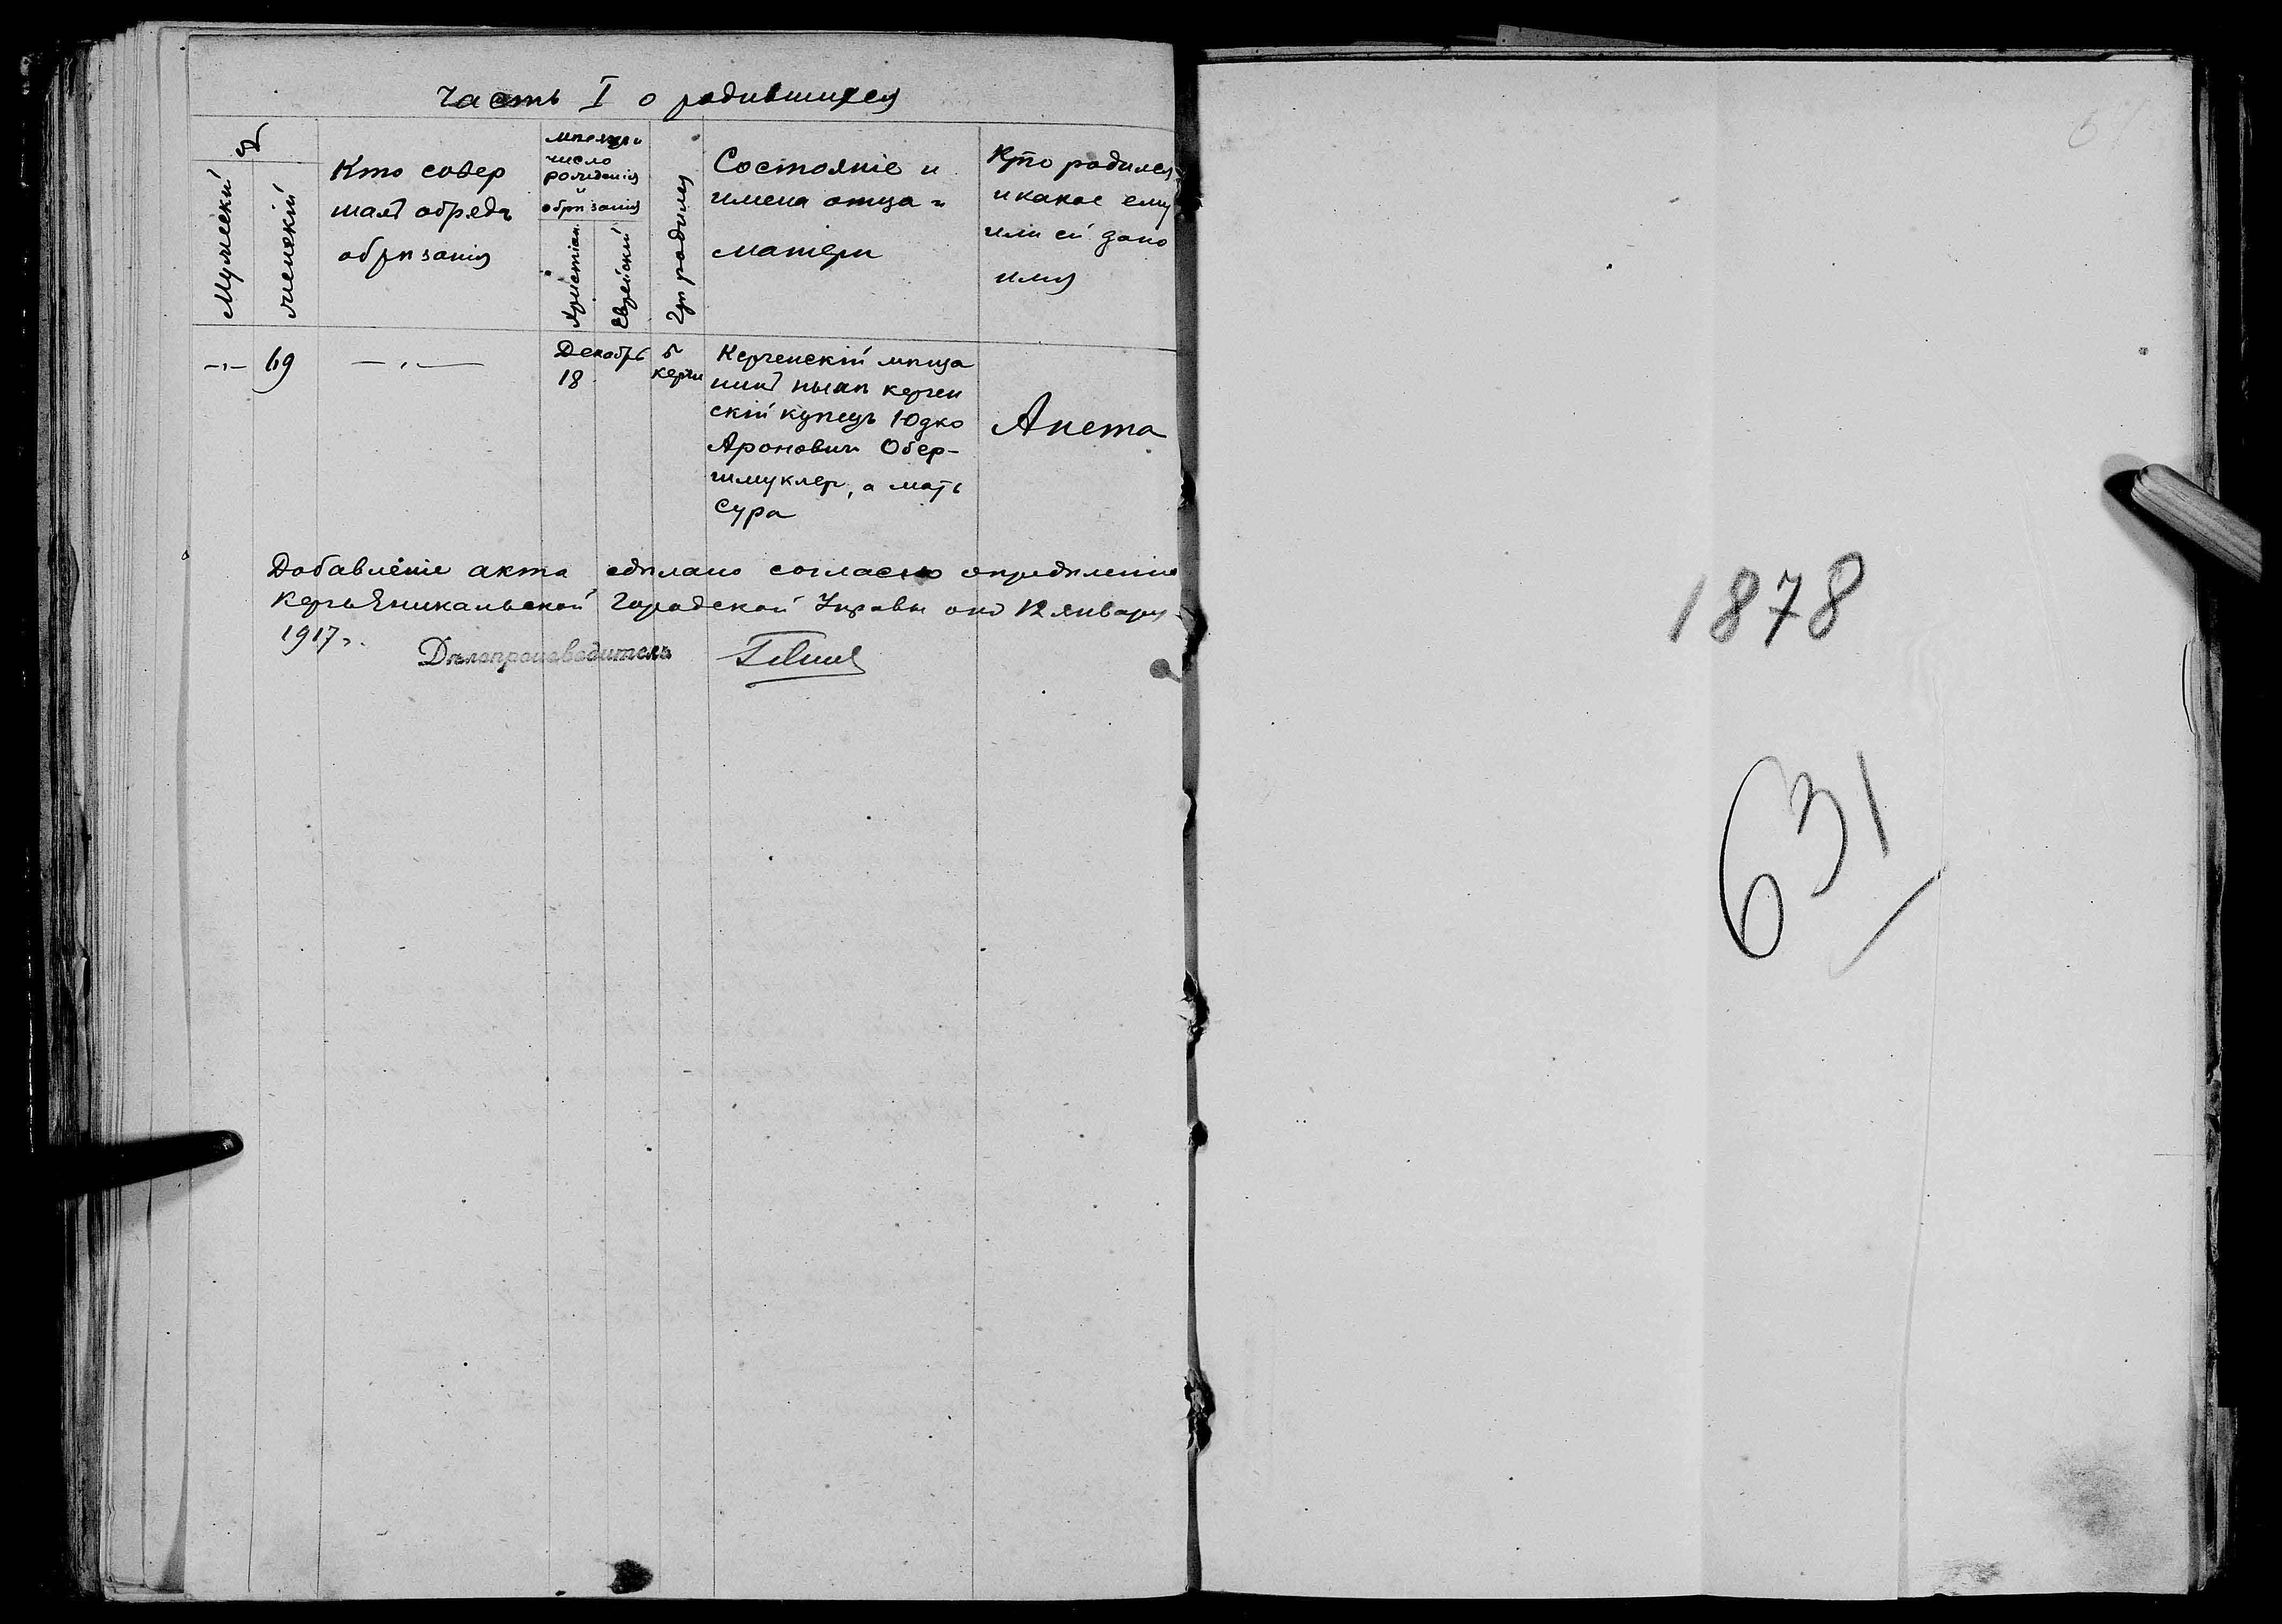 Часть I о родившихся
№
Мужескій
женскій
Кто совер
шалъ обрядъ
обрѣзанія
мѣсяцъ и
число
рожденія
и
обрѣзанія
Христіан.
Еврейскій
Гдѣ родился
Состояніе и
имена отца и
матери
Кто родился
и какое ему
или ей дано
имя
-"- 69 -"-
Декабрь
18
в
Керчи
Керченскій мѣща
нинъ нынѣ керчен
скій купецъ Юдко
Ароновичъ Обер-
шмуклер, а мать
Сура
Анета
Добавленіе акта сдѣлано согласно опредѣленія
Керчь Еникальской Городской Управы отъ 12 января
1917 г.
Дѣлопроизводитель
1878
631